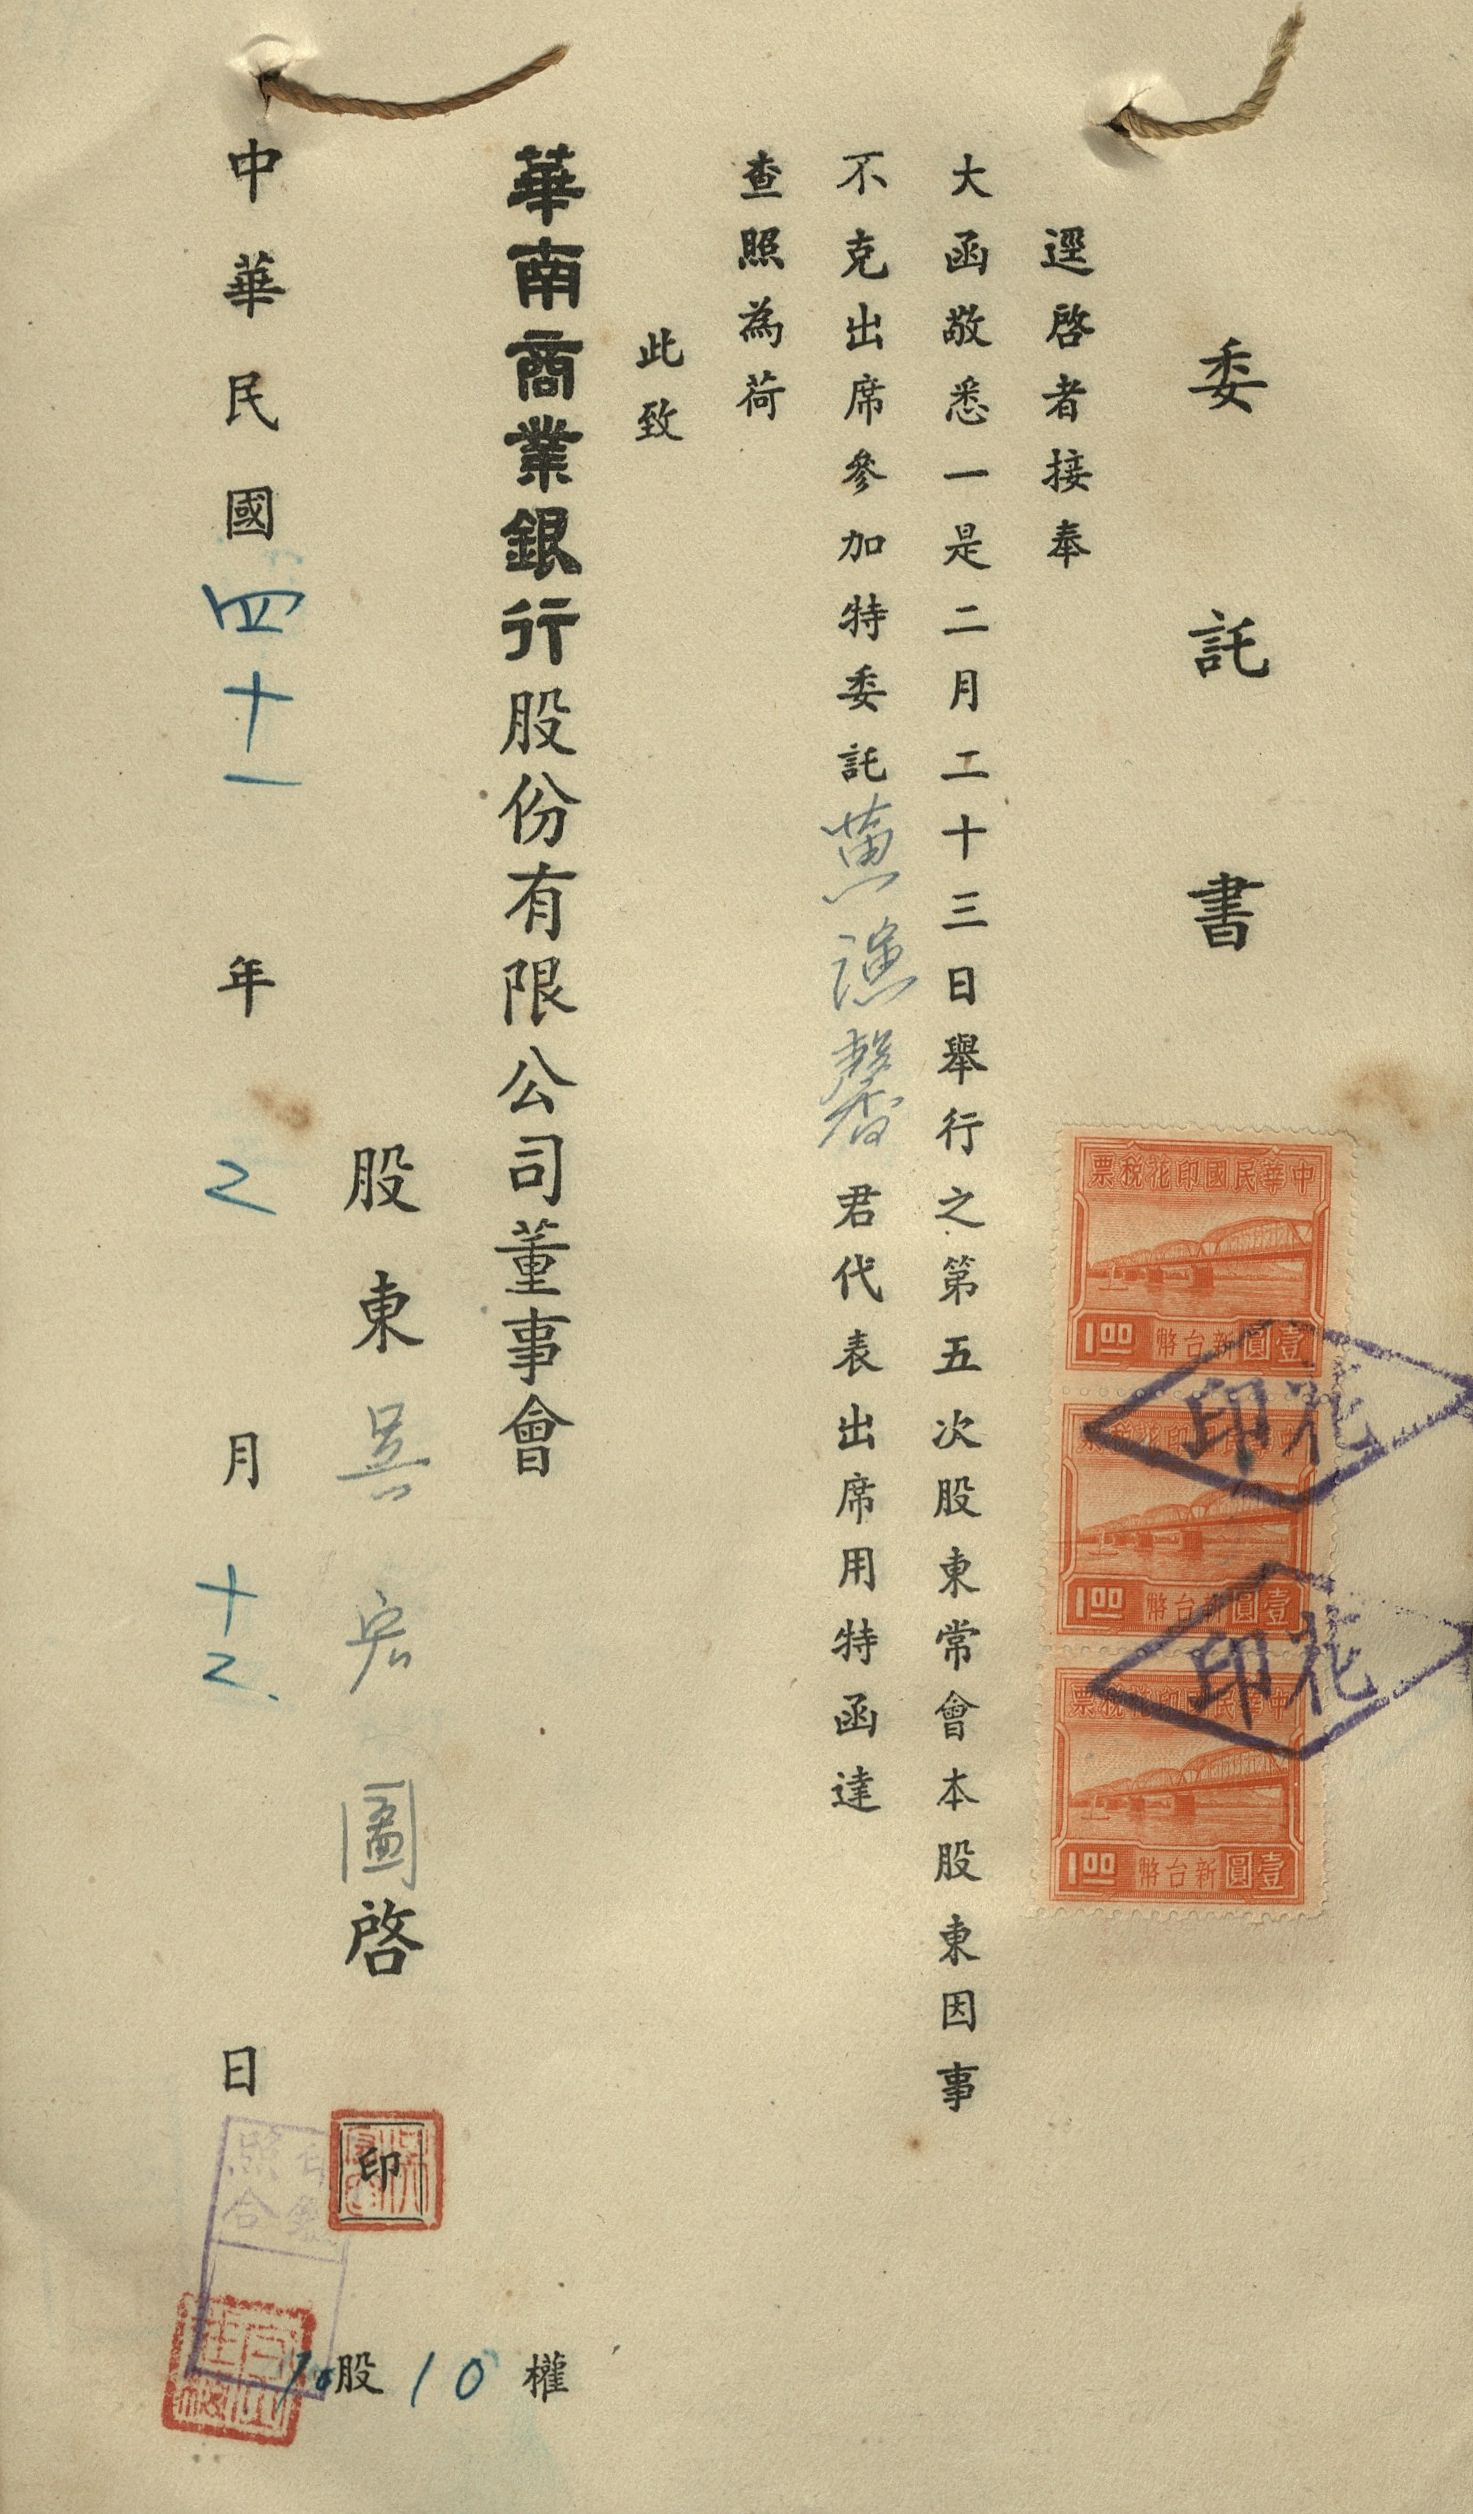 委託書
逕啓者接奉
大函敬悉一是二月二十三日舉行之第五次股東常會本股東因事
不克出席參加特委託黃漁馨君代表出席用特函達
查照為荷
此致
華南商業銀行股份有限公司董事會
股東吳宏圖啓
印
10股10權
中華民國四十一年2月十2日
中華民國印花稅票
壹圓新台幣
1.00
中華民國印花稅票
壹圓新台幣
1.00
中華民國印花稅票
壹圓新台幣
1.00
花印
花印
印鑑
照合